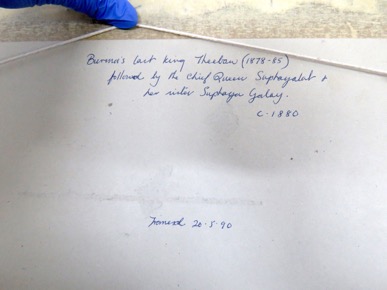 Burma's last king Theebaw (1878-85)
followed by the Chief Queen Suphayalat +
her sister Suphaya Galay.
C-1880
20.5.90